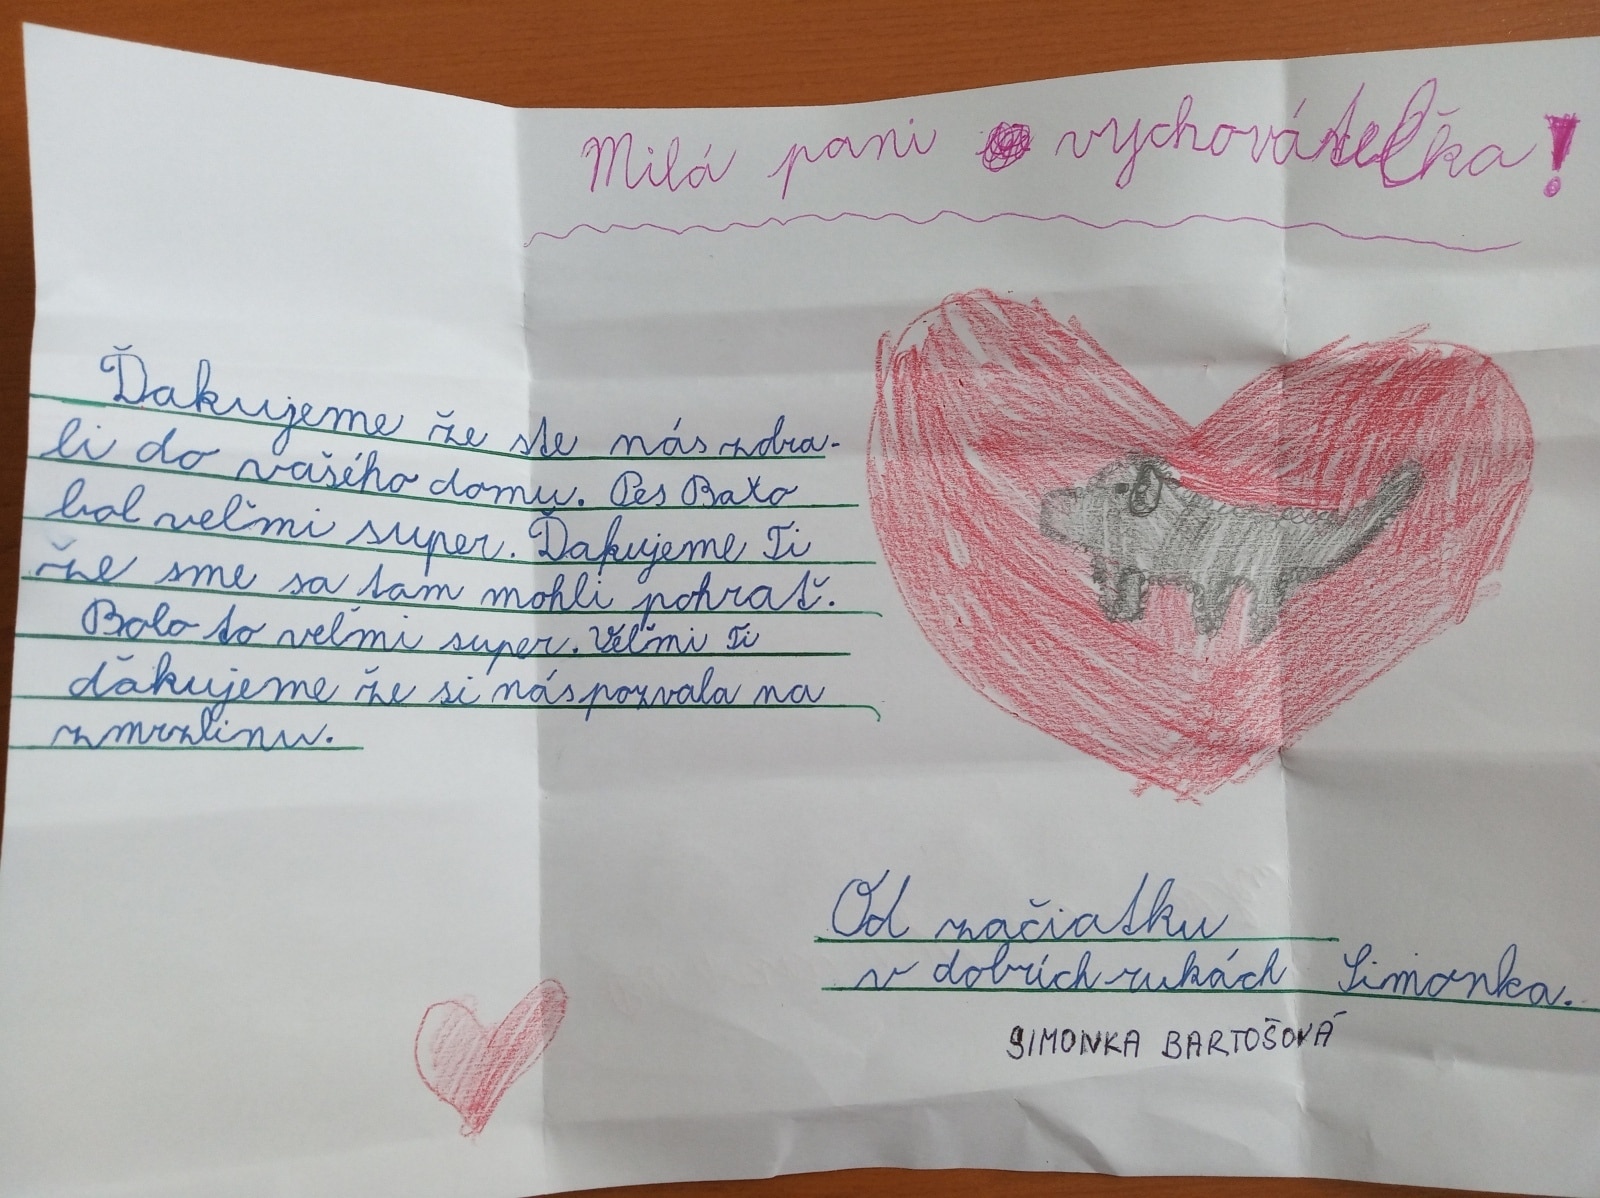 Milá pani vychováteľka!
Ďakujeme že ste nás zobra-
li do vašého domu. Pes Baxo
bol veľmi super. Ďakujeme Ti
že sme sa tam mohli pohrať.
Bolo to veľmi super. Veľmi Ti
ďákujeme že si nás pozvala na
zmrzlinu.
Od začiatku
v dobrích rukách Simonka.
SIMONKA BARTOŠOVÁ